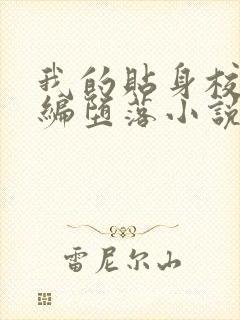 我的贴身校
编堕落小說
雷尼尔山